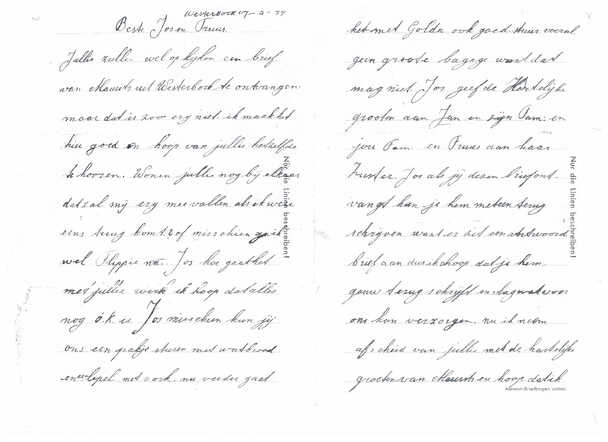 Westerbork 4-77
Beste Jos en Truus
Jullie zullen wel opkijken een brief
van Maurits uit Westerbork te ontvangen
maar dat is zoo erg niet. ik maak het
heel goed en hoop van jullie hetzelfde
te hooren. Wonen jullie nog bij elkaar
dat zal mij erg meevallen als ik weer
eens terug komt of misschien
wel Flippie Jos hoe gaat het
met jullie werk ik hoop dat alles
nog o.k. is. Jos misschien kun jij
ons een pakje sturen met wat brood
en lepel met vork. nu verder gaat
het met Golda ook goed stuur vooral
geen groote bagage want dat
mag niet Jos geef de Hartelijke
groeten aan Jan en zijn Fam. en
jou Fam en Truus aan haar
Zuster. Jos als jij dezen brief ont-
vangt kan je hem meteen terug
schrijven want er zit een antwoord
brief aan dus ik hoop dat je hem
gauw terug schrijft en
ons kan verzorgen. nu ik neem
afscheid van jullie met de hartelijke
groeten van Maurits en hoop dat ik
Nur die Linien beschreiben!
Nur die Linien beschreiben!